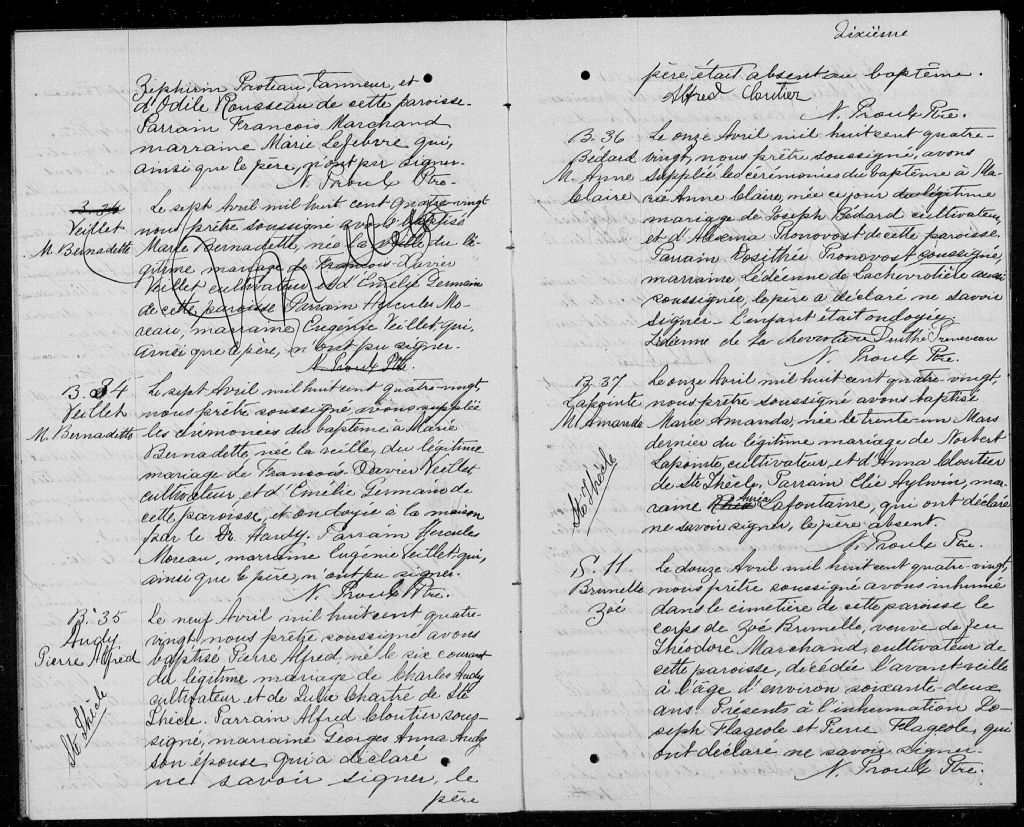 Zéphirin Proteau, Tanneur, et
d'Odile Rousseau de cette paroisse.
Parrain François Marchand
marraine Marie Lefebvre qui,
ainsi que le père, n'ont pu signer.
N. Proulx Ptre.
B. 34
Veillet
M. Bernadette
Le sept Avril mil huit cent quatre-vingt
nous prêtre soussigné avons baptisé
Marie Bernadette, née la veille du lé-
gitime mariage de François-Xavier
Veillet cultivateur et d'Emélie Germain
de cette paroisse Parrain Hercules Mo-
reau, marraine Eugénie Veillet qui,
ainsi que le père, n'ont pu signer.
N. Proulx Ptre.
B. 34
Veillet
M. Bernadette
Le sept Avril mil huit cent quatre-vingt,
nous prêtre soussigné avons suppléé
les cérémonies du baptême à Marie
Bernadette, née la veille, du légitime
mariage de François-Xavier Veillet
cultivateur et d'Emélie Germain de
cette paroisse, et ondoyée à la maison
par le Dr. Hardy. Parrain Hercules
Moreau, marraine Eugénie Veillet qui,
ainsi que le père, n'ont pu signer.
N. Proulx Ptre.
B. 35
Audy
Pierre Alfred
Ste Thècle
Le neuf Avril mil huit cent quatre-
vingt nous prêtre soussigné avons
baptisé Pierre Alfred, né le six courant
du légitime mariage de Charles Audy
cultivateur et de Julie Chartré de Ste
Thècle. Parrain Alfred Cloutier sous-
signé, marraine Georges Anna Audy
son épouse qui a déclaré
ne savoir signer, le
père
Dixième
père était absent au baptême.
Alfred Cloutier
N. Proulx Ptre.
B. 36
Bédard
M. Anne
Claire
Le onze Avril mil huit cent quatre-
vingt, nous prêtre soussigné, avons
suppléé les cérémonies du baptême à Ma-
rie Anne Claire, née ce jour du légitime
mariage de Joseph Bédard cultivateur
et d'Alexina Pronovost de cette paroisse.
Parrain Dosithée Pronovost soussigné,
marraine Lédienne de Lachevrotière aussi
soussignée, le père a déclaré ne savoir
signer - l'enfant était ondoyée.
Lédienne de la chevrotière
N. Proulx Ptre.
B. 37
Lapointe
M. Amanda
Ste Thècle
Le onze Avril mil huit cent quatre-vingt,
nous prêtre soussigné avons baptisé
Marie Amanda, née le trente-un Mars
dernier du légitime mariage de Norbert
Lapointe, cultivateur, et d'Anna Cloutier
de Ste Thècle. Parrain Elie Aylwin, mar-
raine Aurea Lafontaine, qui ont déclaré
ne savoir signer, le père absent.
N. Proulx Ptre.
S. 11
Brunelle
Zoé
Le douze Avril mil huit cent quatre-vingt,
nous prêtre soussigné avons inhumé
dans le cimetière de cette paroisse le
corps de Zoé Brunelle, veuve de feu
Théodore Marchand, cultivateur de
cette paroisse, décédée l'avant-veille
à l'âge d'environ soixante-deux
ans. Présents à l'inhumation Jo-
seph Flageole et Pierre Flageole, qui
ont déclaré ne savoir signer.
N. Proulx Ptre.